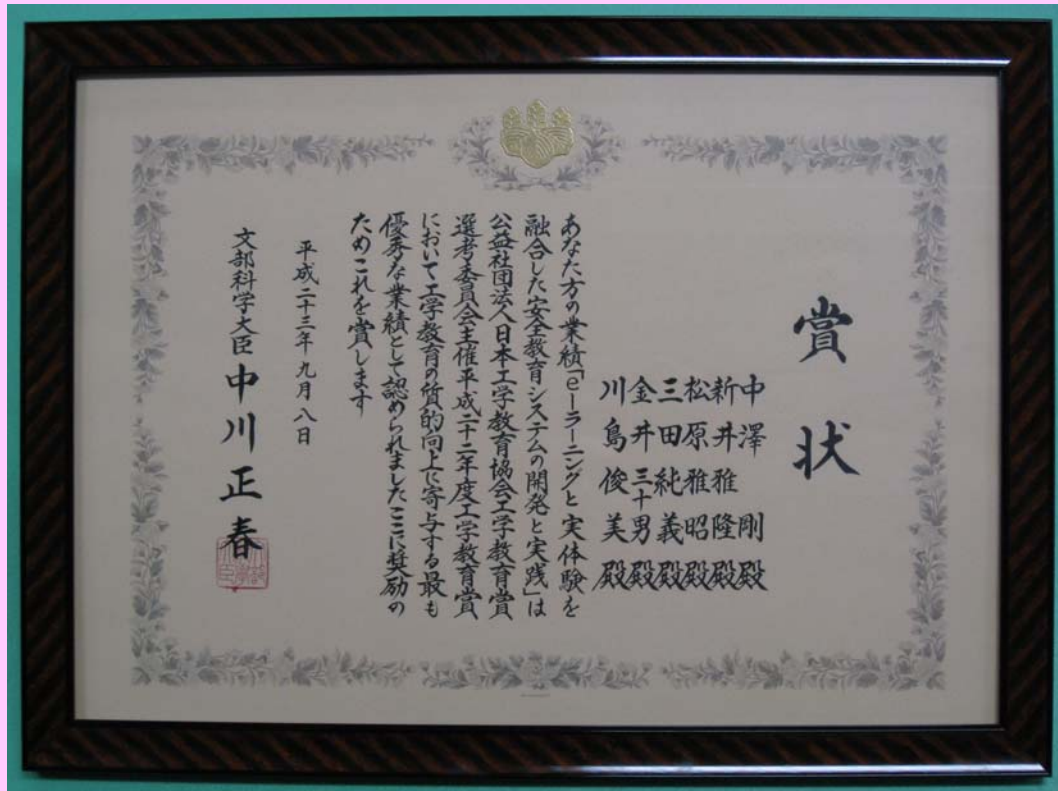 賞状
中澤剛殿
新井雅隆殿
松原雅昭殿
三田純義殿
金井三十男殿
川島俊美殿
あなた方の業績「eーラーニングと実体験を
融合した安全教育システムの開発と実践」は
公益社団法人日本工学教育協会工学教育賞
選考委員会主催平成二十二年度工学教育賞
において工学教育の質的向上に寄与する最も
優秀な業績として認められましたここに奨励の
ためこれを賞します
平成二十三年九月八日
文部科学大臣中川正春